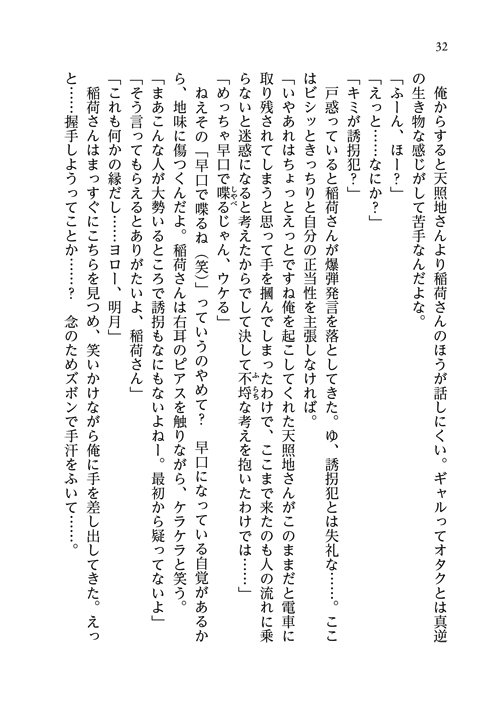 32
俺からすると天照地さんより稲荷さんのほうが話しにくい。ギャルってオタクとは真逆
の生き物な感じがして苦手なんだよな。
「ふーん、ほー？」
「えっと……なにか？」
「キミが誘拐犯？」
戸惑っていると稲荷さんが爆弾発言を落としてきた。ゆ、誘拐犯とは失礼な……。ここ
はビシッときっちりと自分の正当性を主張しなければ。
「いやあれはちょっとえっとですね俺を起こしてくれた天照地さんがこのままだと電車に
取り残されてしまうと思って手を摑んでしまったわけで、ここまで来たのも人の流れに乗
らないと迷惑になると考えたからでして決して不埒な考えを抱いたわけでは……」
「めっちゃ早口で喋るじゃん、ウケる」
ねえその「早口で喋るね（笑）」っていうのやめて？　早口になっている自覚があるか
ら、地味に傷つくんだよ。稲荷さんは右耳のピアスを触りながら、ケラケラと笑う。
「まあこんな人が大勢いるところで誘拐もなにもないよねー。最初から疑ってないよ」
「そう言ってもらえるとありがたいよ、稲荷さん」
「これも何かの縁だし……ヨロー、明月」
稲荷さんはまっすぐにこちらを見つめ、笑いかけながら俺に手を差し出してきた。えっ
と……握手しようってことか……？　念のためズボンで手汗をふいて……。